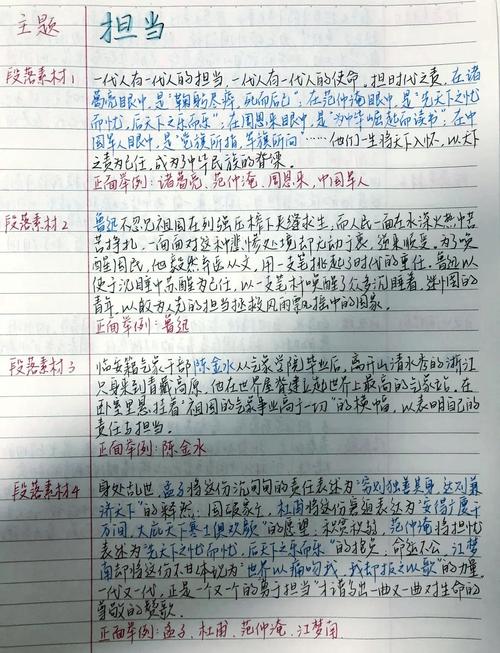 主题 担当
段落素材1 一代人有一代人的担当,一代人有一代人的使命,担时代之责,在诸
葛亮眼中,是"鞠躬尽瘁,死而后已";在范仲淹眼中,是"先天下之忧
而忧,后天下之乐而乐";在周恩来眼中,是"为中华崛起而读书";在中
国军人眼中,是"党旗所指,军旗所向"……他们一生将天下入怀,以天下
之责为己任,成为了中华民族的脊梁。
正面举例:诸葛亮、范仲淹、周恩来、中国军人
段落素材2 鲁迅不忍见祖国在列强压榨下夹缝求生,而人民一面在水深火热中苦
苦挣扎,一向面对这种悲惨处境却无动于衷,逆来顺受。为了唤
醒国民,他毅然弃医从文,用一支笔挑起了时代的重任。鲁迅以
使于沉睡中苏醒为己任,以一支笔杆唤醒了众多沉睡着、迷惘的
青年,以敢为人先的担当拯救风雨飘摇中的国家。
正面举例:鲁迅
段落素材3 临安籍气象干部陈金水从气象学院毕业后,离开山清水秀的浙江
只身来到青藏高原,他在世界屋脊建立起世界上最高的气象站。在
卧室里悬挂着"祖国的气象事业高于一切"的横幅,以表明自己的
责任与担当。
正面举例:陈金水
段落素材4 身处乱世,孟子将这份沉甸甸的责任表述为"穷则独善其身,达则兼
济天下"的释然。国破家亡,杜甫将这份衷迹表达为"安得广厦千
万间,大庇天下寒士俱欢颜"的愿望。积贫积弱,范仲淹将担忧
表述为"先天下之忧而忧,后天下之乐而乐"的抱负。命运不公,江梦
南却将这份不甘体现为"世界以痛吻我,我却报之以歌"的力量。
一代又一代,正是一个又一个的勇于担当"才谱写出一曲又一曲对生命的
尊敬的赞歌。
正面举例:孟子、杜甫、范仲淹、江梦南。